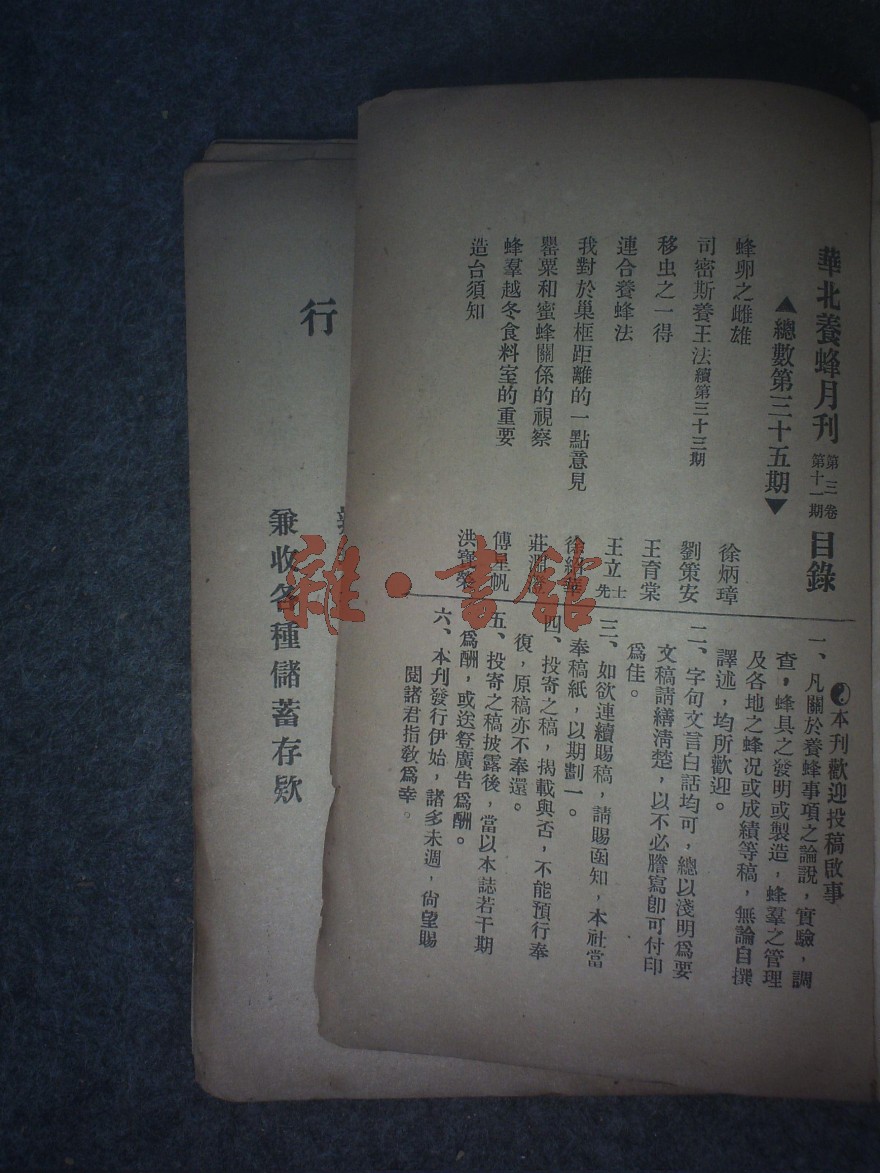 華北養蜂月刊 第三卷 第十一期 目錄
▲總數第三十五期▼
蜂卵之雌雄 徐炳璋
司密斯養王法續第三十三期 劉策安
移虫之一得 王育棠
連合養蜂法 王立士先
我對於巢框距離的一點意見 徐
罌粟和蜜蜂關係的視察 莊
蜂羣越冬食料室的重要 傅星帆
造台須知 洪
本刊歡迎投稿啟事
一、凡關於養蜂事項之論說，實驗，調
查，蜂具之發明或製造，蜂羣之管理
及各地之蜂況或成績等稿，無論自撰
譯述，均所歡迎。
二、字句文言白話均可，總以淺明爲要
文稿請繕清楚，以不必謄寫卽可付印
爲佳。
三、如欲連續賜稿，請賜函知，本社當
奉稿紙，以期劃一。
四、投寄之稿，揭載與否，不能預行奉
復，原稿亦不奉還。
五、投寄之稿披露後，當以本誌若干期
爲酬，或送登廣告爲酬。
六、本刊發行伊始，諸多未週，尙望賜
閱諸君指敎爲幸。
行
兼收各種儲蓄存欵
雜·書館